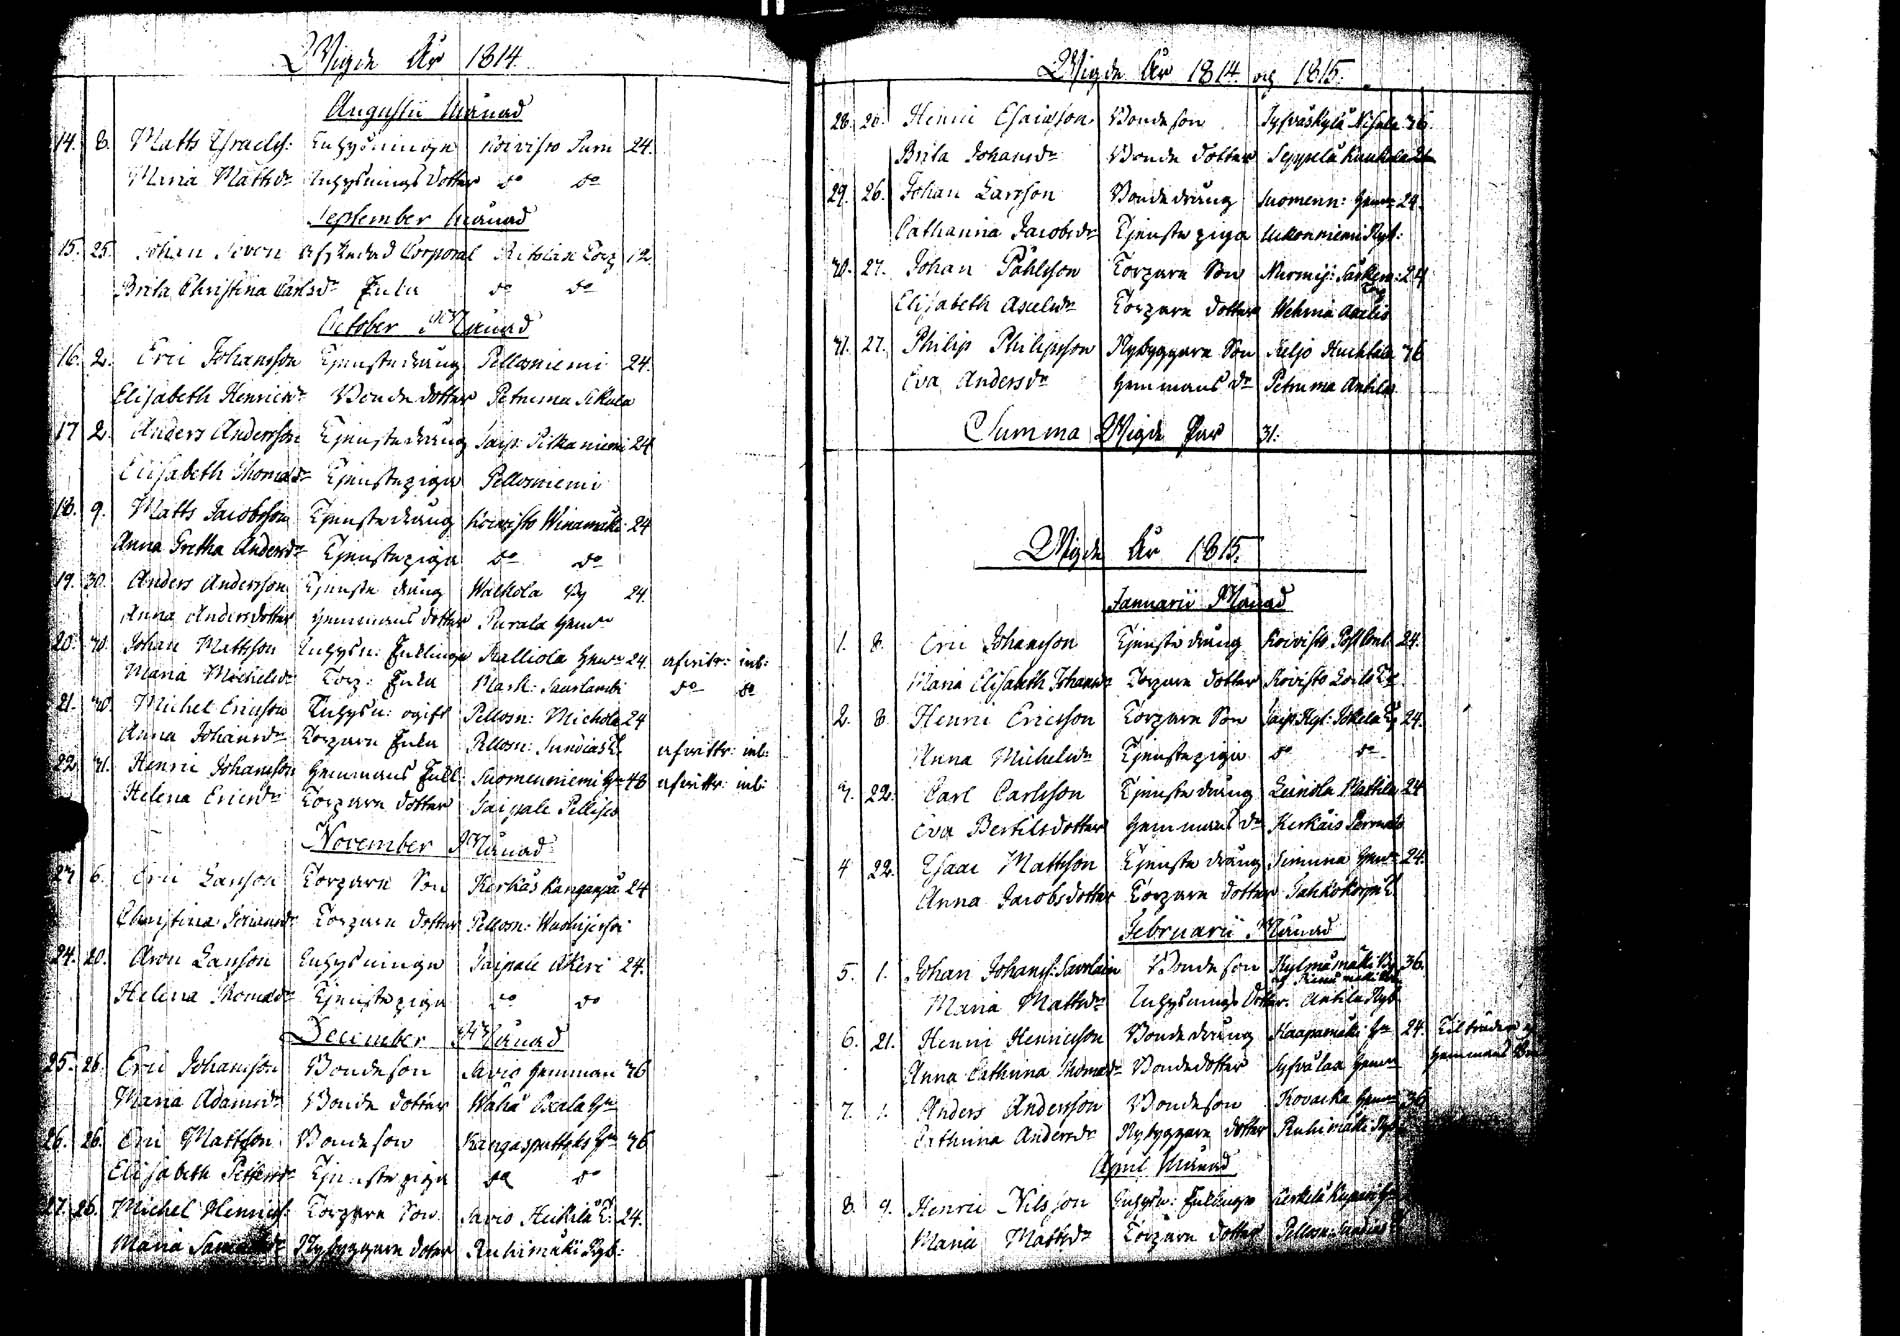 Wigde År 1814.
Augustii Månad
14. 8. Matts Esraelss: Inhysninge Koivisto Sum 24.
Maria Mattsdr Inhysnings Dotter do do
September Månad
15. 25. Johan Sivon Afskedad Corporal Torp 12.
Brita Christina Carlsdr Enka do do
October Månad
16. 2. Eric Johansson Tjenstedräng Pellosniemi 24.
Elisabeth Henricsdr Bonde dotter Petruma Sikala
17 2. Anders Andersson Tjenstedräng Saip: Pitkaniemi 24
Elisabeth Thomasdr Tjenstepiga Pellosniemi
18. 9. Matts Jacobsson Tjenstedräng Koivisto Winamäki 24
Anna Gretha Andersdr Tjenstepiga do do
19. 30. Anders Andersson Tjenste dräng Walkola By 24.
Anna Andersdotter Hemmans dotter Purala Hemn
20. 30. Johan Mattsson Inhysn: Enklinge Kalliola Hemn 24 afvittr: inl:
Maria Michelsdr Torp: Enka Mark: Saarlambi do do
21. 30. Michel Ericsson Inhysn: ogift Pellosn: Michola 24
Anna Johansdr Torpare Enka Pellosn: Sundias T. afvittr: inl:
22 31. Henric Johansson Hemmans Enkl: Suomenniemi Hn 48 afvittr: inl:
Helena Ericsdr Torpare dotter Taipale Pellises
November Månad
23 6. Eric Larsson Torpare Son Kerkäs Kangaspä 24
Christina Johansdr Torpare dotter Pellosn:
24. 20. Aron Larsson Inhysninge Taipale Akeri 24.
Helena Thomasdr Tjenstepiga do do
December Månad
25. 26. Eric Johansson Bondeson Savio Hemman 36
Maria Adamsdr Bonde dotter Wähä Oxala Hn
26. 26. Eric Mattsson Bondeson Kangasputtels Hn 36
Elisabeth Pettersdr Tjenstepiga do do
27. 26. Michel Henricss: Torpare Son Savio Heikilä T. 24.
Maria Nybyggare doter Ruhimäki Nyb:
Wigde År 1814. och 1815.
28. 26. Henric Esaiasson Bondeson Syfväskylä Nisula 36
Brita Johansdr Bonde dotter Seppelä Kaukola
29. 26. Johan Larsson Bondedräng Suomenn: Hemn 24.
Catharina Jacobsdr Tjenste piga Ukonniemi Nyb:
30. 27. Johan Påhlsson Torpare Son Nurmij: Särkem: 24
Elisabeth Axelsdr Torpare dotter Wehma Axelis Torp
31. 27. Philip Philipsson Nybyggare Son Keljo Huchtala 36
Eva Andersdr Hemmans dr Petruma Antila
Summa Wigde Par 31:
Wigde År 1815.
Januarii Månad
1. 8. Eric Johansson Tjenste dräng Koivisto Postbol 24.
Maria Elisabeth Johansdr Torpare dotter Koivisto
2. 8. Henric Ericsson Torpare Son Saip: Kyl: Jokela T. 24.
Anna Michelsdr Tjenstepiga do do
3. 22. Carl Carlsson Tjenste dräng Leinola Mattila 24
Eva Bertilsdotter Hemmans dr Kerkäis Parmala
4 22. Esaac Mattsson Tjenste dräng Simuna Hemn 24.
Anna Jacobsdotter Torpare dotter Sahkokorpi T.
Februarii Månad
5. 1. Johan Johanss: Savolain Bondeson Kylmämäki By 36.
Maria Mattsdr Inhysnings dotter Antila Nyb
6. 21. Henric Henricsson Bondedräng Haapamäki Hn 24. Tilträder
Anna Cathrina Thomasdr Bondedotter Syfvälax Hemn Hemmans
7. 1. Anders Andersson Bondeson Kovacka Hemn 36
Cathrina Andersdr Nybyggare dotter Ruhimäki Nyb:
April Månad
8. 9. Henric Nilsson Inhysn: Enklinge Kerkelä
Maria Mattsdr Torpare dotter Pellosn: Sundias T.